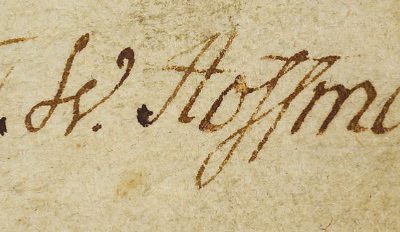 W. Hoffm